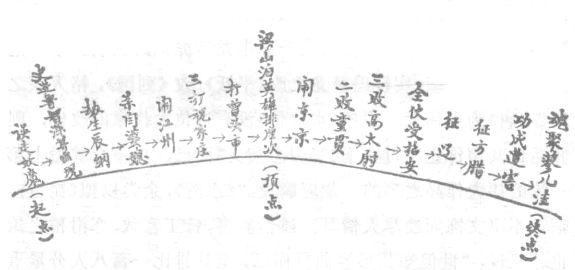 误走妖魔(起点)
劫生辰纲
闹江州
三打祝家庄
打曾头市
梁山泊英雄排座次(顶点)
闹东京
二败童贯
三败高太尉
全伙受招安
征辽
征方腊
功成遭害
聚蓼儿洼(终点)